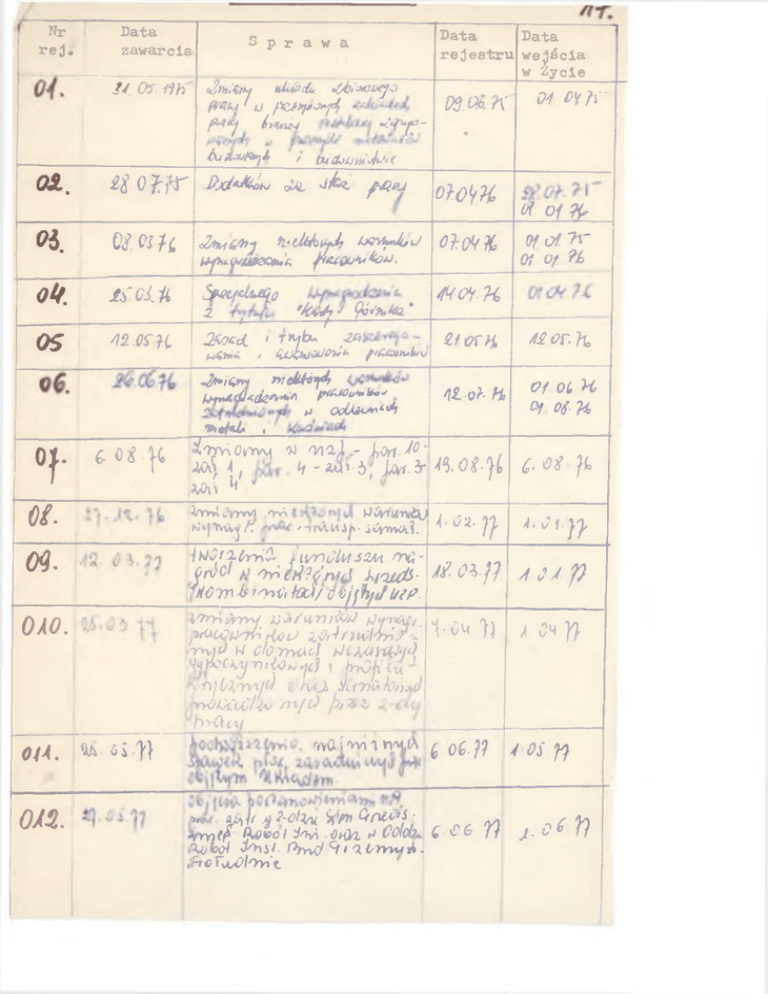 Nr rej.
Data zawarcia
Sprawa
Data rejestru
Data wejścia w Życie
01.
31 05 1975
Zmiany układu zbiorowego
pracy w
pracy
budowlanych i budownictwie
09.06.75
01 04 75
02.
28.07.75
Dodatków za staż pracy
07.04.76
28.07.75
01 01 76
03.
08.03.76
Zmiany niektórych warunków
wynagradzania pracowników.
07.04.76
01 01 75
01 01 76
04.
25.03.76
Specjalnego wynagrodzenia
z tytułu "Karty Górnika"
14.04.76
01.04.76
05
12.05.76
Zasad i trybu zaszerego-
wania i awansowania pracowników
21 05 76
12.05.76
06.
26.06.76
Zmiany niektórych warunków
wynagradzania pracowników
zatrudnionych w odlewniach
metali i kuźniach
12.07.76
01.06 76
01.08.76
07.
6.08.76
Zmiany w
zał. 1, par. 4 - zał. 3, par. 3
zał. 4
19.08.76
6.08 76
08.
27.12.76
zmiany niektórych warunków
wynagr. prac. transp. samoch.
1.02.77
1.01.77
09.
12.03.77
tworzenia funduszu na-
gród w niektórych przeds.
/kombinatach/ objętych UZP.
18.03.77
1 01.77
010.
25.03 77
zmiany warunków wynagr.
pracowników zatrudnio-
nych w domach wczasowych
wypoczynkowych i
oraz sanatoriach
prowadzonych przez z-dy
pracy
1 04 77
011.
25.05.77
podwyższenia najniższych
stawek płac zasadniczych
objętym układem
6 06.77
1.05 77
012.
27.05.77
objęcia postanowieniami
Robót Inż. oraz w Oddz.
Robót Inst. Bud. Przemysł.
6 06 77
1.06 77